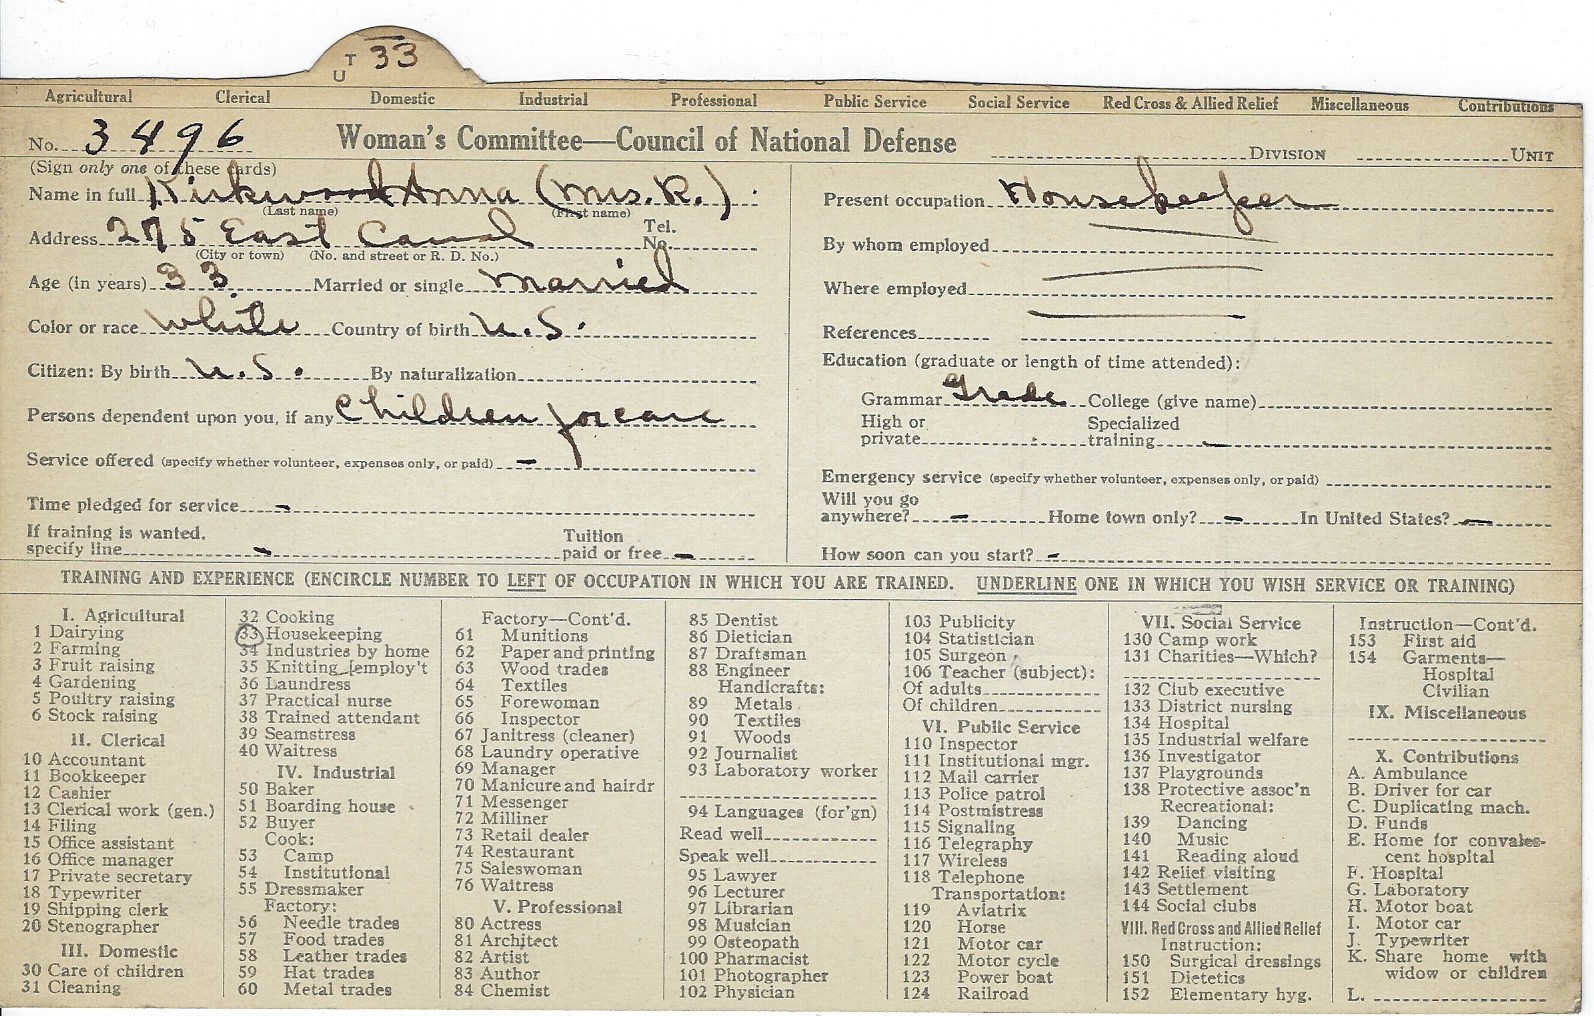 T
U 33
Agricultural Clerical Domestic Industrial Professional Public Service Social Service Red Cross & Allied Relief Miscellaneous Contributions
No. 3496 Woman's Committee—Council of National Defense DIVISION UNIT
(Sign only one of these cards)
Name in full Kirkwood Anna (Mrs. R.)
(Last name) (First name)
Address 275 East Canal Tel. No.
(City or town) (No. and street or R. D. No.)
Age (in years) 33 Married or single Married
Color or race White Country of birth U.S.
Citizen: By birth U.S. By naturalization
Persons dependent upon you, if any Children for care
Service offered (specify whether volunteer, expenses only, or paid) –
Time pledged for service –
If training is wanted, specify line – Tuition paid or free –
Present occupation Housekeeper
By whom employed
Where employed
References
Education (graduate or length of time attended):
Grammar Grade College (give name)
High or private Specialized training –
Emergency service (specify whether volunteer, expenses only, or paid)
Will you go anywhere? – Home town only? – In United States? –
How soon can you start? –
TRAINING AND EXPERIENCE (ENCIRCLE NUMBER TO LEFT OF OCCUPATION IN WHICH YOU ARE TRAINED. UNDERLINE ONE IN WHICH YOU WISH SERVICE OR TRAINING)
I. Agricultural
1 Dairying
2 Farming
3 Fruit raising
4 Gardening
5 Poultry raising
6 Stock raising
II. Clerical
10 Accountant
11 Bookkeeper
12 Cashier
13 Clerical work (gen.)
14 Filing
15 Office assistant
16 Office manager
17 Private secretary
18 Typewriter
19 Shipping clerk
20 Stenographer
III. Domestic
30 Care of children
31 Cleaning
32 Cooking
33 Housekeeping
34 Industries by home
35 Knitting [employ't
36 Laundress
37 Practical nurse
38 Trained attendant
39 Seamstress
40 Waitress
IV. Industrial
50 Baker
51 Boarding house
52 Buyer
Cook:
53 Camp
54 Institutional
55 Dressmaker
Factory:
56 Needle trades
57 Food trades
58 Leather trades
59 Hat trades
60 Metal trades
Factory—Cont'd.
61 Munitions
62 Paper and printing
63 Wood trades
64 Textiles
65 Forewoman
66 Inspector
67 Janitress (cleaner)
68 Laundry operative
69 Manager
70 Manicure and hairdr
71 Messenger
72 Milliner
73 Retail dealer
74 Restaurant
75 Saleswoman
76 Waitress
V. Professional
80 Actress
81 Architect
82 Artist
83 Author
84 Chemist
85 Dentist
86 Dietician
87 Draftsman
88 Engineer
Handicrafts:
89 Metals
90 Textiles
91 Woods
92 Journalist
93 Laboratory worker
94 Languages (for'gn)
Read well
Speak well
95 Lawyer
96 Lecturer
97 Librarian
98 Musician
99 Osteopath
100 Pharmacist
101 Photographer
102 Physician
103 Publicity
104 Statistician
105 Surgeon
106 Teacher (subject):
Of adults
Of children
VI. Public Service
110 Inspector
111 Institutional mgr.
112 Mail carrier
113 Police patrol
114 Postmistress
115 Signaling
116 Telegraphy
117 Wireless
118 Telephone
Transportation:
119 Aviatrix
120 Horse
121 Motor car
122 Motor cycle
123 Power boat
124 Railroad
VII. Social Service
130 Camp work
131 Charities—Which?
132 Club executive
133 District nursing
134 Hospital
135 Industrial welfare
136 Investigator
137 Playgrounds
138 Protective assoc'n
Recreational:
139 Dancing
140 Music
141 Reading aloud
142 Relief visiting
143 Settlement
144 Social clubs
VIII. Red Cross and Allied Relief
Instruction:
150 Surgical dressings
151 Dietetics
152 Elementary hyg.
Instruction—Cont'd.
153 First aid
154 Garments—
Hospital
Civilian
IX. Miscellaneous
X. Contributions
A. Ambulance
B. Driver for car
C. Duplicating mach.
D. Funds
E. Home for convales-
cent hospital
F. Hospital
G. Laboratory
H. Motor boat
I. Motor car
J. Typewriter
K. Share home with
widow or children
L.